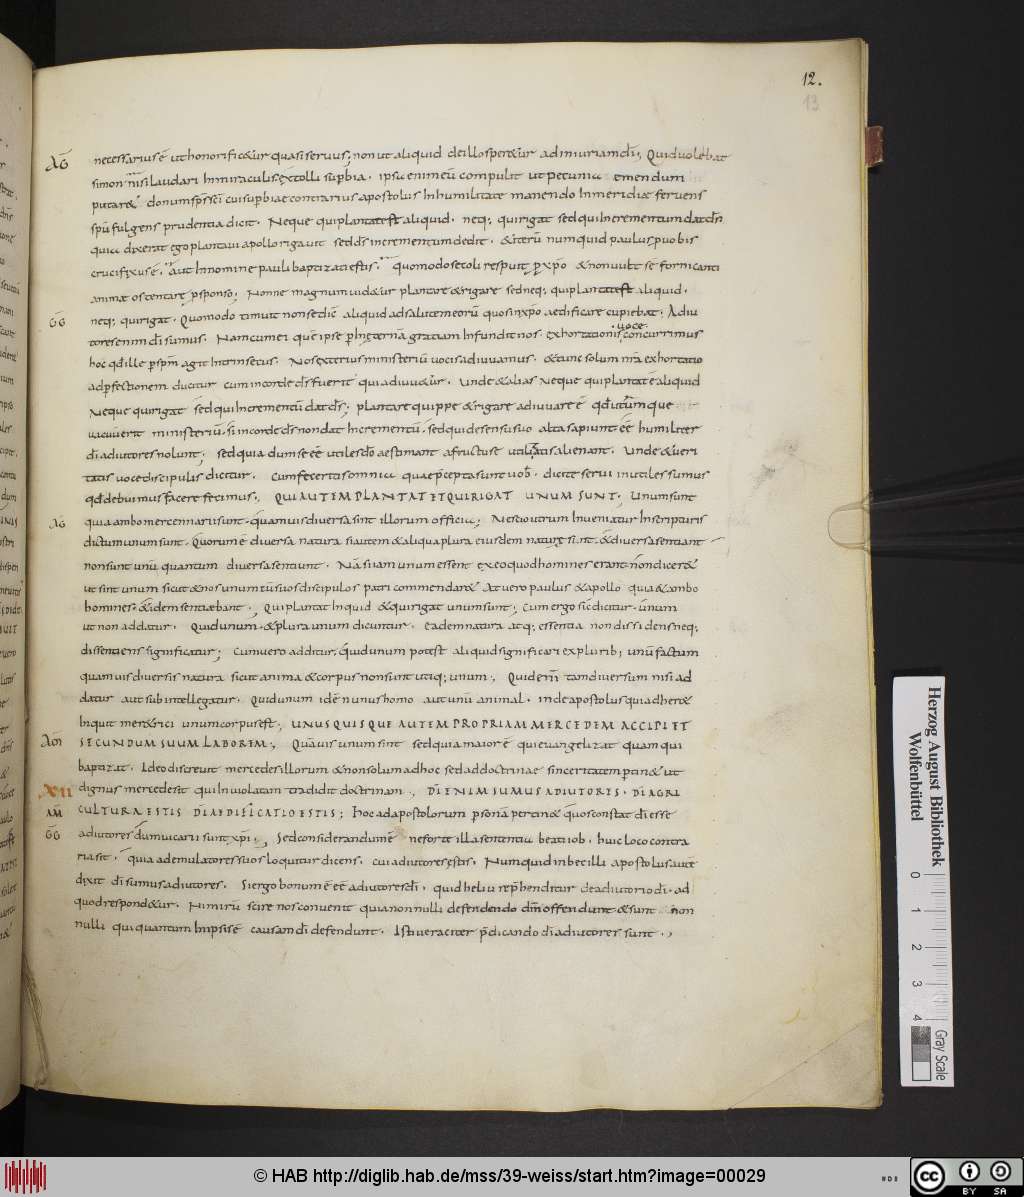 12.
13
AG necessarius ē ut honorific&ur quasi seruus, non ut aliquid de illo sper&ur ad iniuriam dī; Quid uolebat
simon nisi laudari In miraculis, extolli supbia. ipsa enim eū compulit ut pecunia emendum
putar& donum sps sci cui supbiae contrarius apostolus In humilitate manendo In meridiae feruens
spū fulgens prudentia dicit. Neque qui plantat est aliquid. neq; qui rigat sed qui Incrementum dat ds.
quia dixerat ego plantaui apollo rigauit sed ds incrementum dedit. & iterū numquid paulus, p uobis
crucifixus ē. Aut In nomine pauli baptizati estis. quomodo se coli respuit, p xpo & non uult se fornicanti
animae ostentare p sponso; Nonne magnum uid&ur plantare & rigare sed neq; qui plantat est aliquid.
GG neq; qui rigat. Quomodo timuit non se dic aliquid ad salutem eorū quos in xpo aedificare cupiebat. Adiu
tores enim di sumus. Nam cum ei quē ipse p In&ernā gratiam Infundit nos exhortationis uoce concurrimus
hoc qd ille p spm agit Intrinsecus. Nos exterius ministeriū uocis adiuuamus. & tunc solum nra exhortatio
ad pfectionem ducitur cum in corde ds fuerit qui adiuu&ur. Unde & alias Neque qui plantat ē aliquid
Neque qui rigat sed qui Incrementū dat ds; plantare quippe & rigare adiuuare ē qd utrumque
uacuū erit ministeriū, si in corde ds non dat Incrementū. sed qui de sensu suo alta sapiunt ēē humiliter
di adiutores nolunt; sed quia dum se ēē utiles do aestimant a fructu se utilitatis alienant. Unde & ueri
tatis uoce discipulis dicitur. Cum feceritis omnia quae pcepta sunt uob. dicite serui inutiles sumus
qd debuimus facere fecimus. QUI AUTEM PLANTAT ET QUI RIGAT UNUM SUNT. Unum sunt
AG quia ambo mercennarii sunt. quamuis diuersa sint illorum officia; Nescio utrum Inueniatur In scripturis
dictum unum sunt. Quorum ē diuersa natura si autem & aliqua plura eiusdem naturę sint. & diuersa sentiant
non sunt unū quantum diuersa sentiunt. Nā si iam unum essent ex eo quod homines erant. non dicer&
ut sint unum sicut & nos unum cū suos discipulos patri commendar& At uero paulus & apollo quia & ambo
homines. & idem sentiebant. Qui plantat Inquid & qui rigat unum sunt; Cum ergo sic dicitur. unum
ut non addatur. Quid unum. & plura unum dicuntur. Eadem natura atq; essentia non dissidens neq;
dissentiens significatur; Cum uero additur, quid unum potest aliquid significari ex plurib; unū factum
quamuis diuersis natura sicut anima & corpus non sunt utiq; unum; Quid enī tam diuersum nisi ad
datur aut subintellegatur. Quid unum idē nunus homo aut unū animal. inde apostolus qui adher&
Inquit mer&rici unum corpus est; UNUS QUISQUE AUTEM PROPRIAM MERCEDEM ACCIPIET
SECUNDUM SUUM LABOREM; Quāuis unum sint sed quia maior ē qui euangelizat quam qui
baptizat. Ideo discreuit mercedes illorum & non solum ad hoc sed ad doctrinae sinceritatem ptin& ut
XII dignus mercede sit qui Inuiolatam tradidit doctrinam; DI ENIM SUMUS ADIUTORES. DI AGRI
AM CULTURA ESTIS DI AEDIFICATIO ESTIS; hoc ad apostolorum psonā pertin& quos constat dī esse
GG adiutores dum uicarii sunt xpi; Sed considerandum ē ne forte illa sententia beati iob. huic loco contra
ria sit. quia ad emulatores suos loquitur dicens. cui adiutores estis. Numquid inbecilli apostolus aute
dixit di sumus adiutores. Si ergo bonum ē ēē adiutores di. quid heliu rephenditur de adiutorio di. ad
quod respond&ur. Nimirū scire nos conuenit quia non nulli defendendo dm offendunt & sunt non
nulli qui quantum In ipsis ē causam di defendunt. Isti ueraciter pdicando di adiutores sunt.;
Herzog August Bibliothek
Wolfenbüttel
0 1 2 3 4
Gray Scale
© HAB http://diglib.hab.de/mss/39-weiss/start.htm?image=00029
cc BY SA